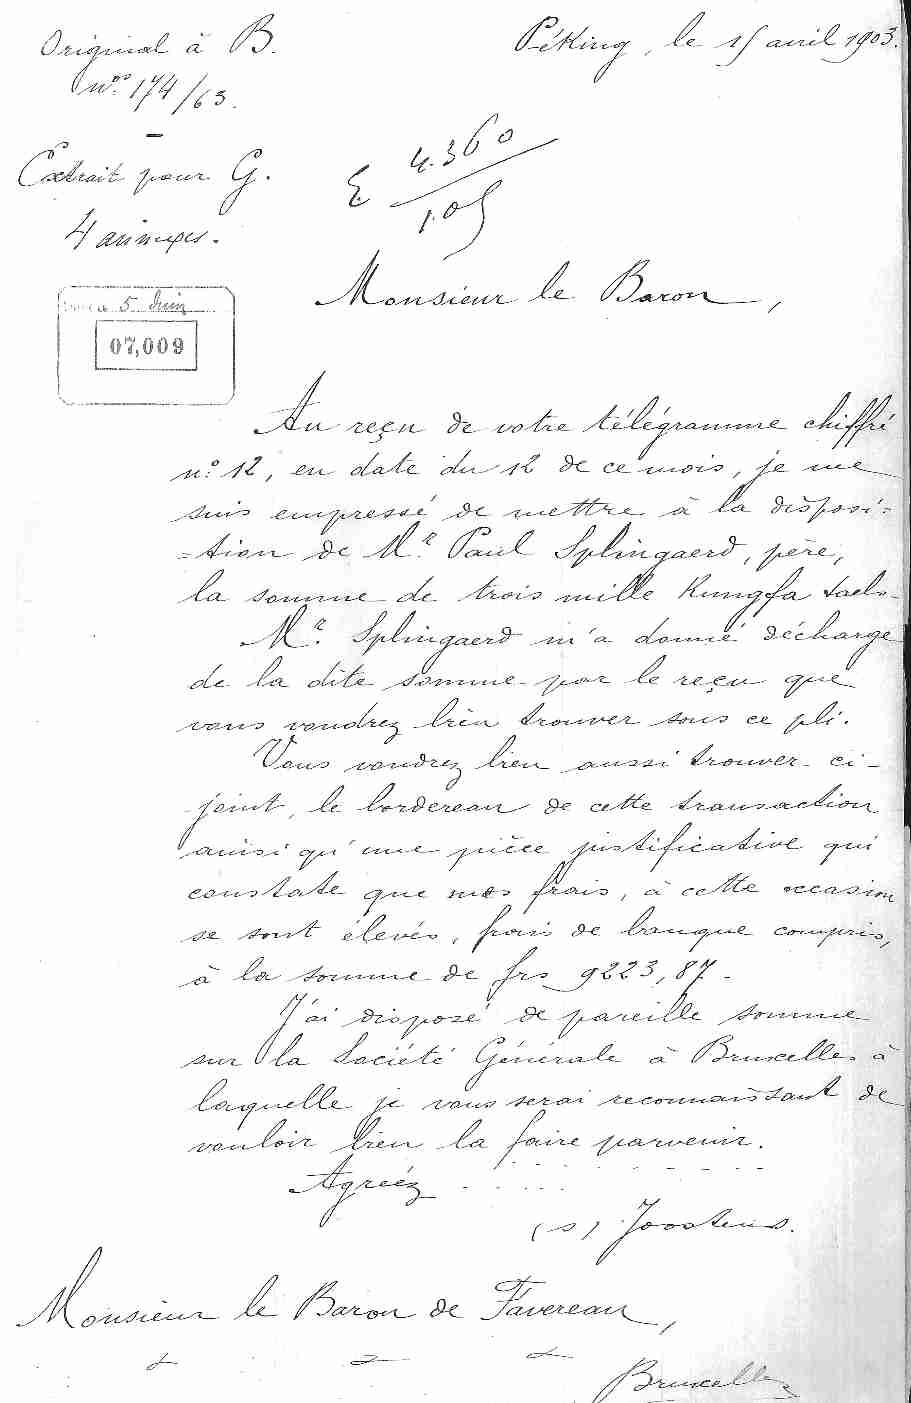 Original à B.
nos 174/63.
Extrait pour G.
4 annexes.
Péking, le 15 avril 1903.
E 4.360
105
5 Juin
07,009
Monsieur le Baron,
Au reçu de votre télégramme chiffré
n° 12, en date du 12 de ce mois, je me
suis empressé de mettre à la disposi=
=tion de Mr Paul Splingaerd, père,
la somme de trois mille Kungfa taels.
Mr Splingaerd m'a donné décharge
de la dite somme par le reçu que
vous voudrez bien trouver sous ce pli.
Vous voudrez bien aussi trouver ci-
joint, le bordereau de cette transaction
ainsi qu'une pièce justificative qui
constate que mes frais, à cette occasion
se sont élevés, frais de banque compris,
à la somme de frs 9223,87.
J'ai disposé de pareille somme
sur la Société Générale à Bruxelles à
laquelle je vous serai reconnaissant de
vouloir bien la faire parvenir.
Agréez . . . . . . . . . . .
(s) Joostens.
Monsieur le Baron de Favereau,
Bruxelles